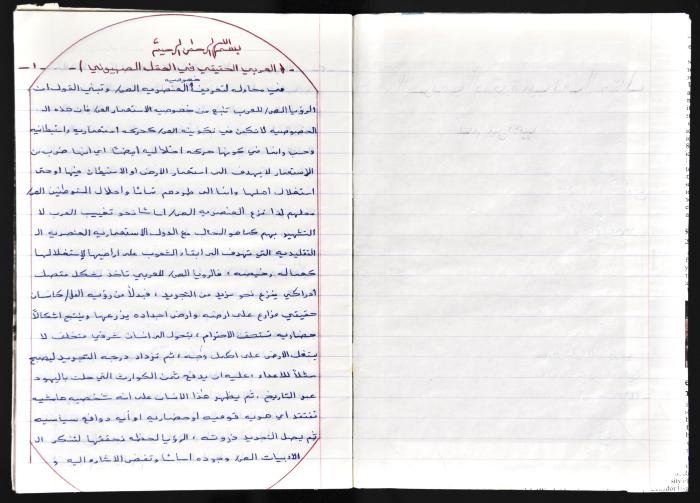 بسم الله الرحمن الرحيم
( العربي الحقيقي في العقل الصهيوني ) - ١ -
خصوصيه
في محاوله لتعريف العنصريه الص/ وتبني القولات
الرؤيا الص/ للعرب تنبع من خصوصيه الاستعمار الص/ فان هذه الـ
الخصوصيه لا تكمن في تكوينه الص/ كحركه استعماريه واستيطانيه
وحسب وانما في كونها حركه احلاليه ايضاً اي انها ضرب من
الاستعمار لا يهدف الى استعمار الارض او الاستيطان فيها او حتى
استغلال اهلها وانما الى طردهم تماماً واحلال المستوطنين الص/
محلهم لذا تنزع العنصريه الص/ اساساً نحو تغييب العرب لا
التشهير بهم كما هو الحال مع الدول الاستعماريه العنصريه الـ
التقليديه التي تهدف الى ابقاء الشعوب على اراضيها لإستغلالها
كعماله رخيصه ، فالرؤيا الص/ للعربي تاخذ بشكل متصل
ادراكي ينزع نحو مزيد من التجريد ، فبدلاً من رؤيه العربي كانسان
حقيقي مزارع على ارضه وارض اجداده يزرعها وينتج اشكالاً
حضاريه تستحق الاحترام ، يتحول الى انسان شرقي متخلف لا
يشغل الارض على اكمل وجه ، ثم تزداد درجه التجريد ليصبح
مثلاً للاعداء ، عليه ان يدفع ثمن الكوارث التي حلت باليهود
عبر التاريخ ، ثم يظهر هذا الانسان على انه شخصيه هامشيه
تفتقد اي هويه قوميه او حضاريه او أيه دوافع سياسيه
ثم يصل التجريد ذروته ، الرؤيا لحظه تحققها لتنكر الـ
الادبيات الص/ وجوده اساساً وتغفل الاشاره اليه و